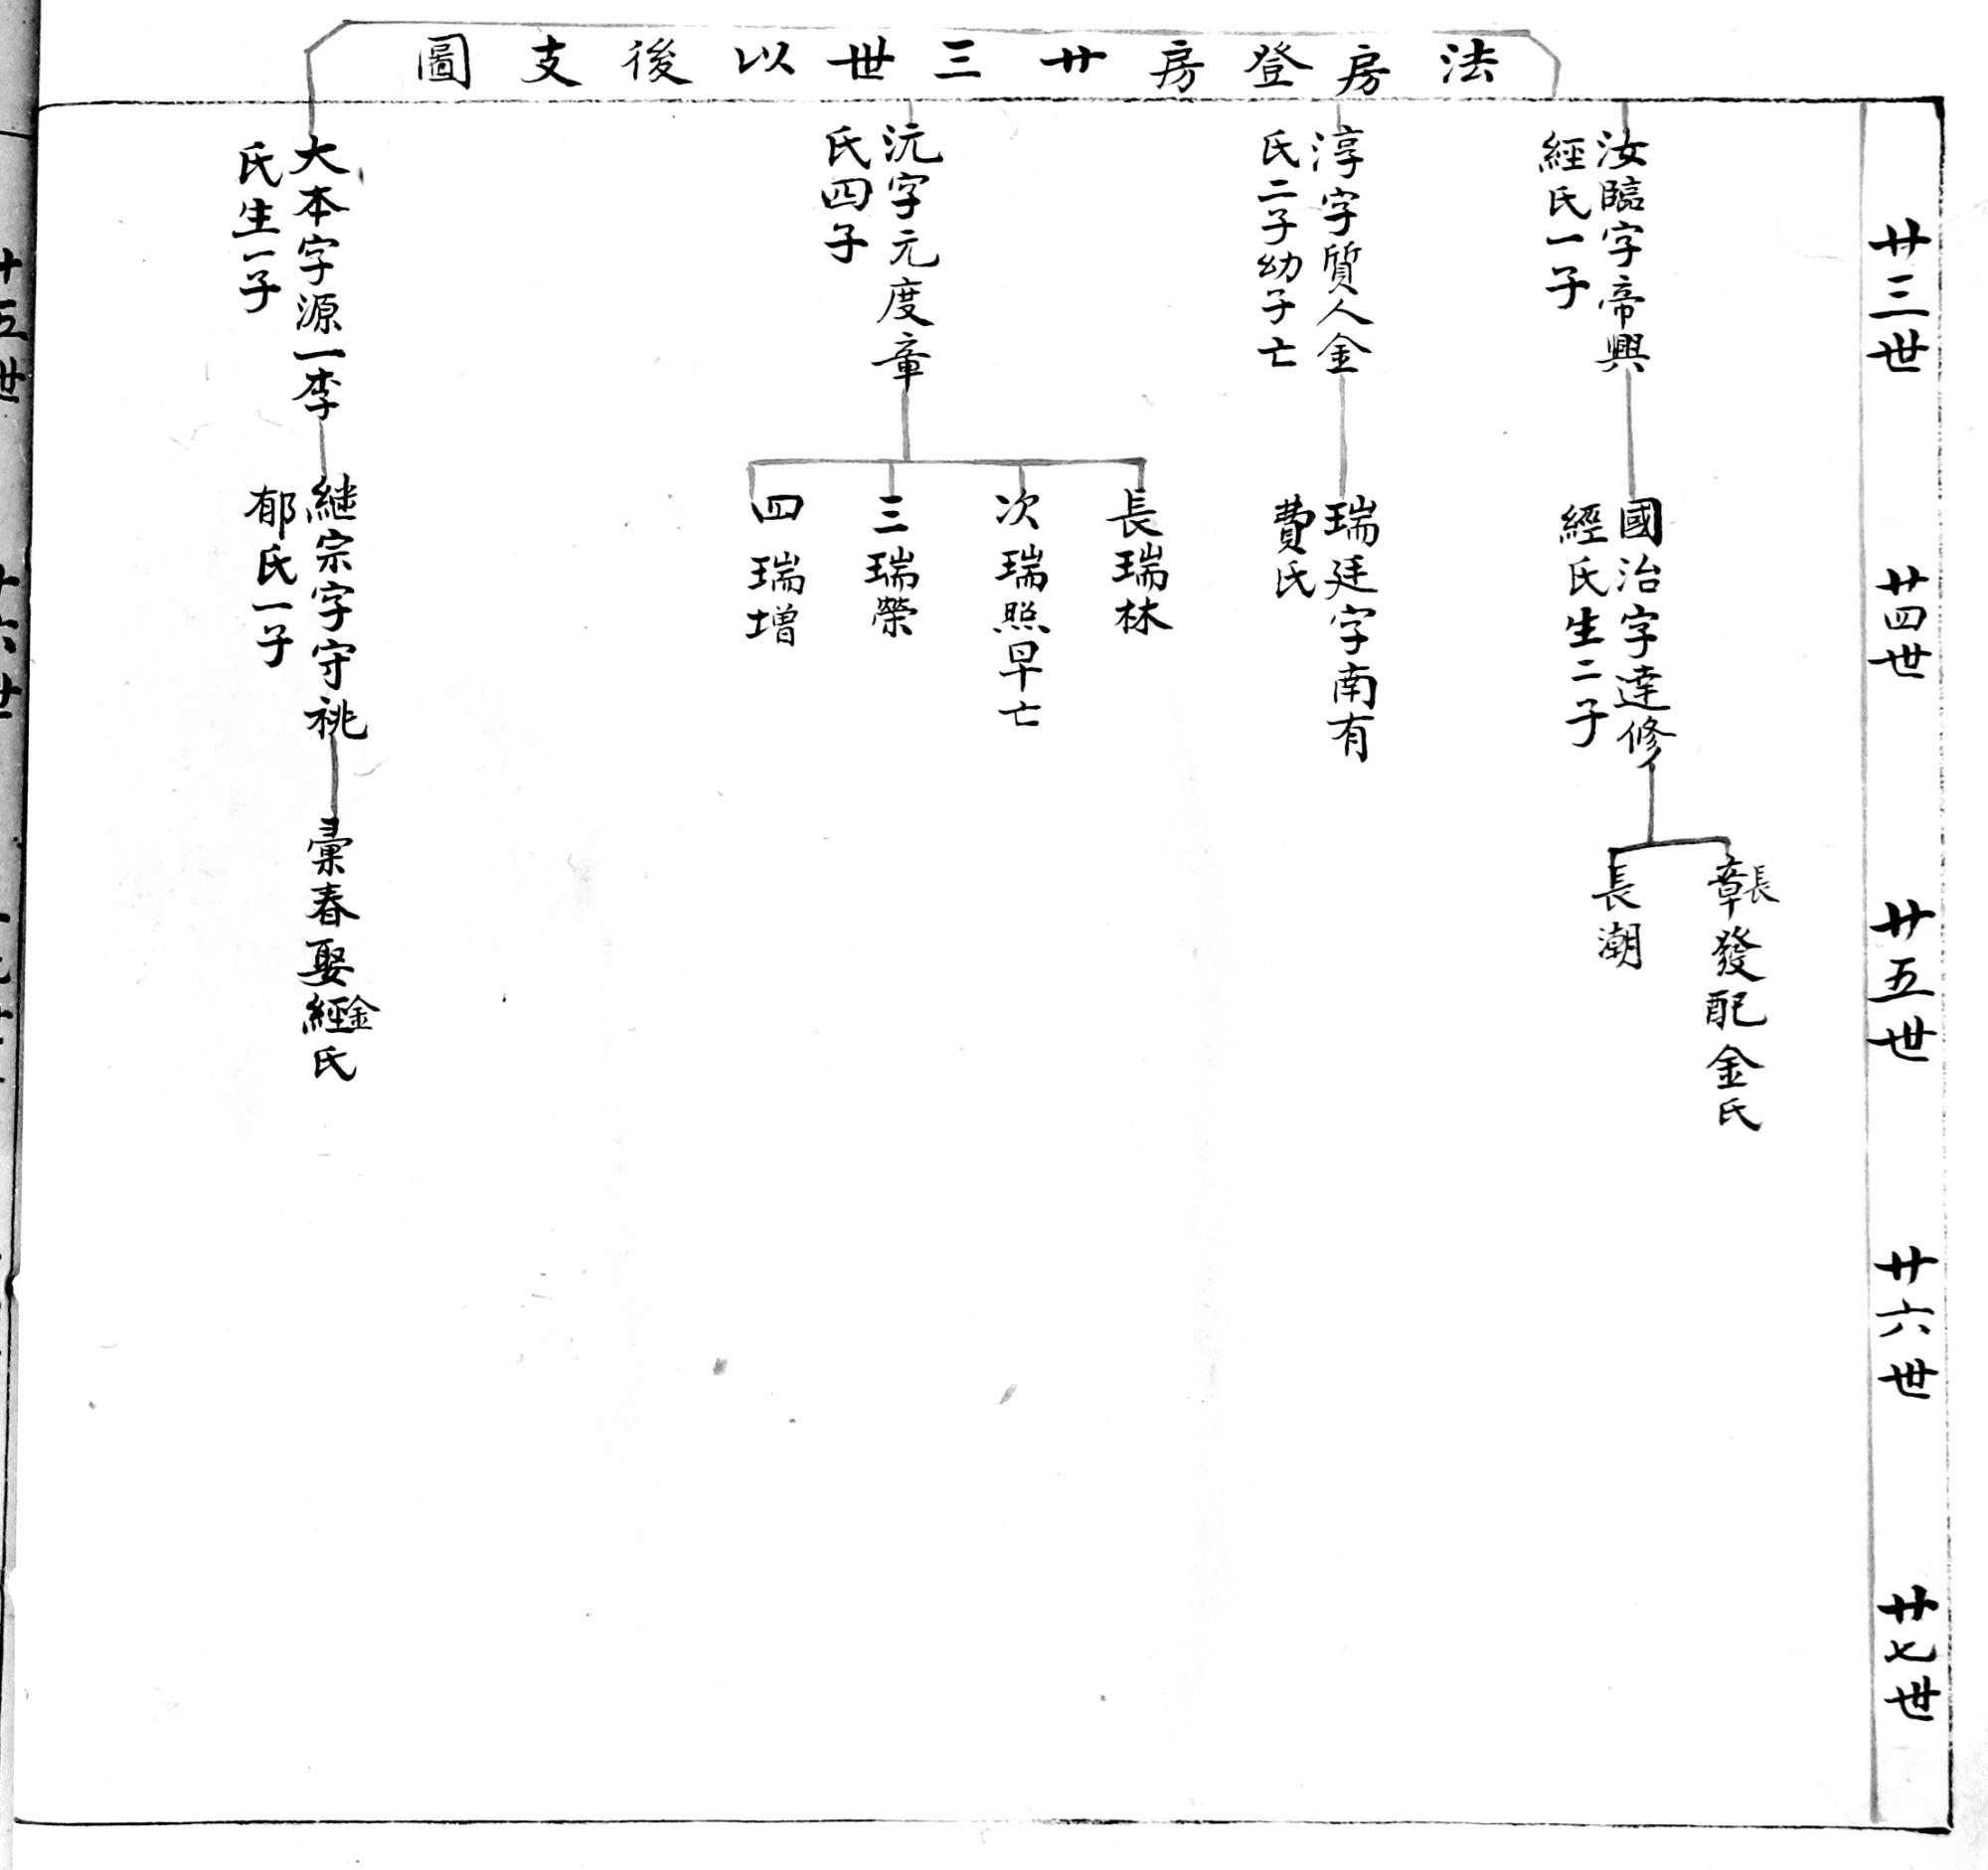 法房登房廿三世以後支圖
廿三世
廿四世
廿五世
廿六世
廿七世
汝臨字帝興
經氏一子
國治字達修
經氏生二子
長章發配金氏
長潮
淳字質人金
氏二子幼子亡
瑞廷字南有
費氏
沅字元度章
氏四子
長瑞林
次瑞照早亡
三瑞榮
四瑞增
大本字源一李
氏生一子
繼宗字守祧
郁氏一子
彙春娶經金氏
十五世
十六世